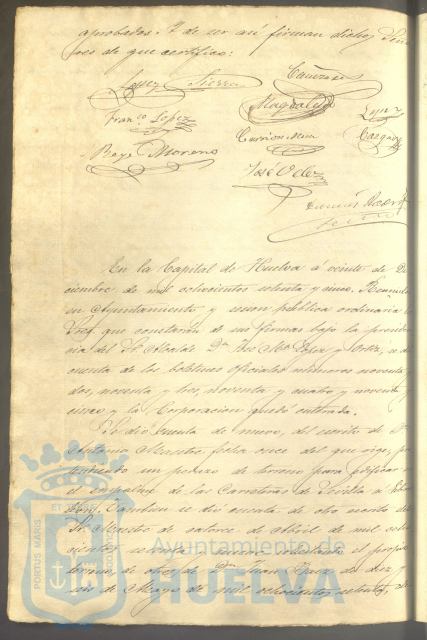 aprobadas. Y de ser así firman dichos Seño
res de que certifico:
Lopez Tierra
Magdalena
Franco Lopez
Lopez
Carrion
Vazquez
Rayo Moreno
José Velez
En la Capital de Huelva á veinte de Di
ciembre de mil ochocientos setenta y cinco. Reunidos
en Ayuntamiento y sesion pública ordinaria los
Sres. que constarán de sus firmas bajo la presiden
cia del Sr. Alcalde Dn. José Ma. Lopez y Ortiz, se dio
cuenta de los boletines oficiales números noventa y
dos, noventa y tres, noventa y cuatro y noventa y
cinco y la Corporacion quedó enterada.
Se dió cuenta de nuevo, del escrito de Dn.
Antonio Maestre fecha once del que rige, pre
tendiendo un pedazo de terreno para edificar en
el empalme de las Carreteras de Sevilla a
Tambien se dió cuenta de otro escrito del
Sr. Maestre de catorce de abril de mil ocho
cientos setenta
de obras, de Dn. Juan de diez y
seis de Mayo de mil ochocientos setenta,
PORTUS MARIS ET TERRAE CUSTODIA
Ayuntamiento de
HUELVA